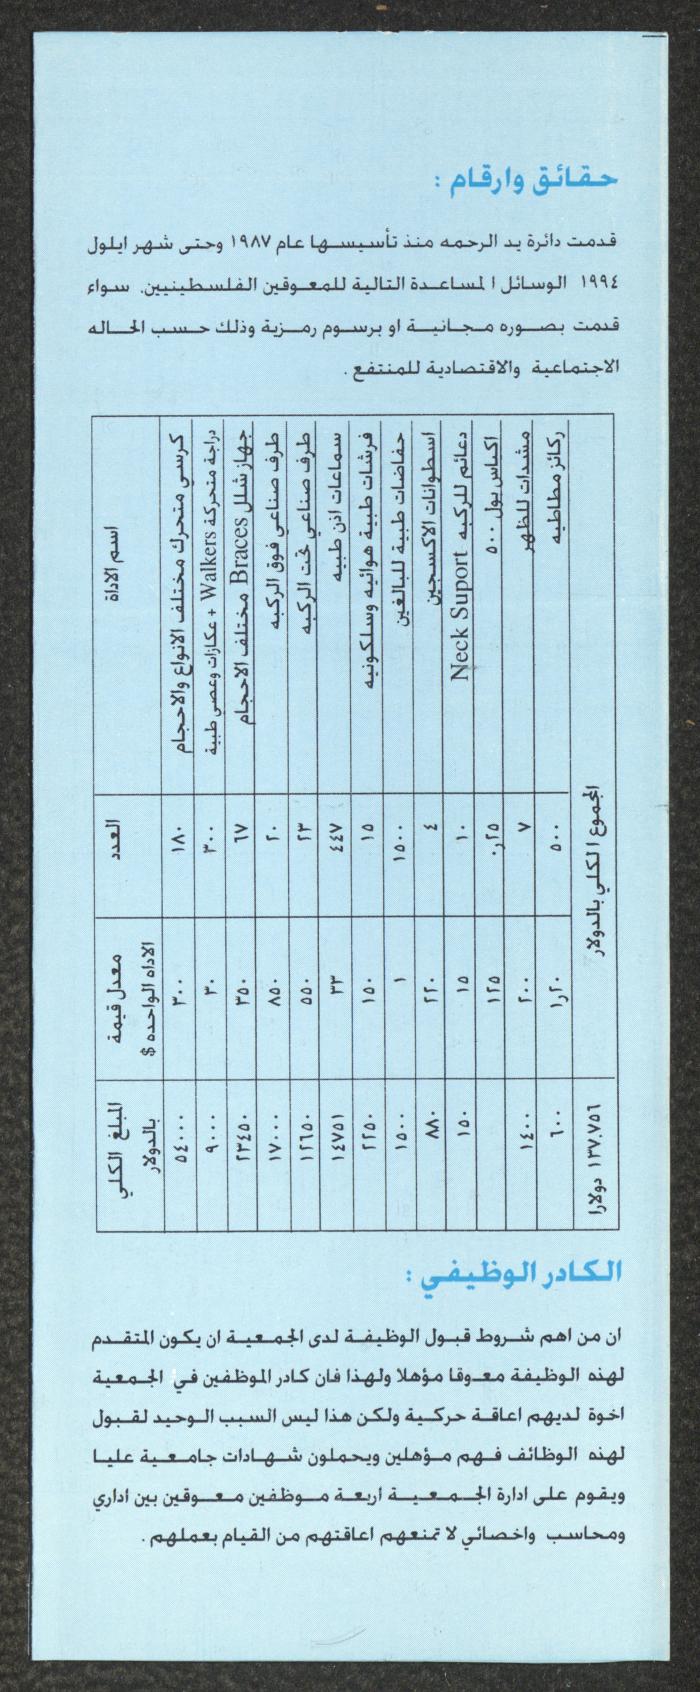 حقائق وارقام :
قدمت دائرة يد الرحمه منذ تأسيسها عام ١٩٨٧ وحتى شهر ايلول
١٩٩٤ الوسائل المساعدة التالية للمعوقين الفلسطينيين. سواء
قدمت بصوره مجانية او برسوم رمزية وذلك حسب الحاله
الاجتماعية والاقتصادية للمنتفع .
اسم الاداة العدد معدل قيمة الاداه الواحده $ المبلغ الكلي بالدولار
كرسي متحرك مختلف الانواع والاحجام ١٨٠ ٣٠٠ ٥٤٠٠٠
دراجة متحركة Walkers + عكازات وعصي طبية ٣٠٠ ٣٠ ٩٠٠٠
جهاز شلل Braces مختلف الاحجام ٦٧ ٣٥٠ ٢٣٤٥٠
طرف صناعي فوق الركبه ٢٠ ٨٥٠ ١٧٠٠٠
طرف صناعي تحت الركبه ٢٣ ٥٥٠ ١٢٦٥٠
سماعات اذن طبيه ٤٤٧ ٣٣ ١٤٧٥١
فرشات طبية هوائيه وسلكونيه ١٥ ١٥٠ ٢٢٥٠
حفاضات طبية للبالغين ١٥٠٠ ١ ١٥٠٠
اسطوانات الاكسجين ٤ ٢٢٠ ٨٨٠
دعائم للركبه Neck Suport ١٠ ١٥ ١٥٠
اكياس بول ٥٠٠ ٠,٢٥ ١٢٥
مشدات للظهر ٧ ٢٠٠ ١٤٠٠
ركائز مطاطيه ٥٠٠ ١,٢٠ ٦٠٠
المجموع الكلي بالدولار ١٣٧,٧٥٦ دولارا
الكادر الوظيفي :
ان من اهم شروط قبول الوظيفة لدى الجمعية ان يكون المتقدم
لهذه الوظيفة معوقا مؤهلا ولهذا فان كادر الموظفين في الجمعية
اخوة لديهم اعاقة حركية ولكن هذا ليس السبب الوحيد لقبول
لهذه الوظائف فهم مؤهلين ويحملون شهادات جامعية عليا
ويقوم على ادارة الجمعية اربعة موظفين معوقين بين اداري
ومحاسب واخصائي لا تمنعهم اعاقتهم من القيام بعملهم .